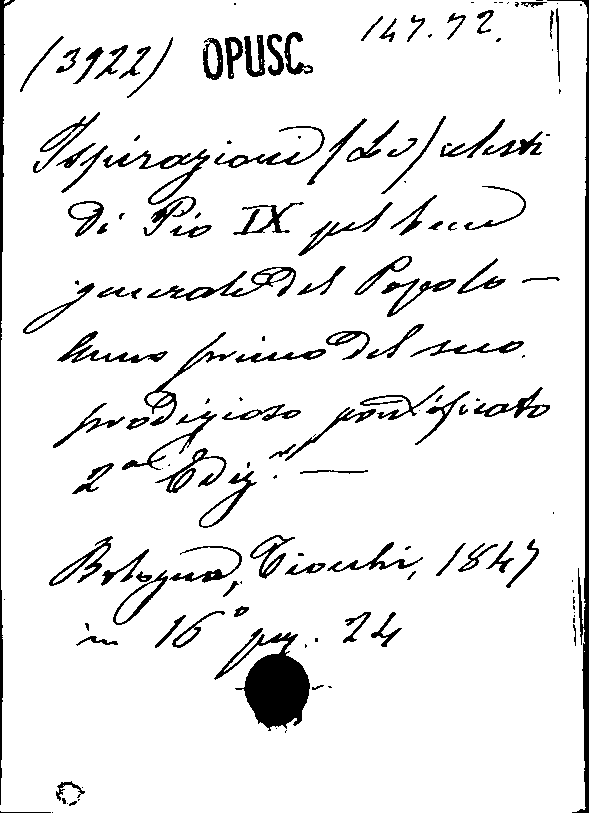 (3922) OPUSC. 147.72.
Ispirazioni (Le) celesti
di Pio IX pel bene
generale del Popolo —
Anno primo del suo
prodigioso pontificato
2a Ediz.ne —
Bologna, Tiocchi, 1847
in 16° pag. 24